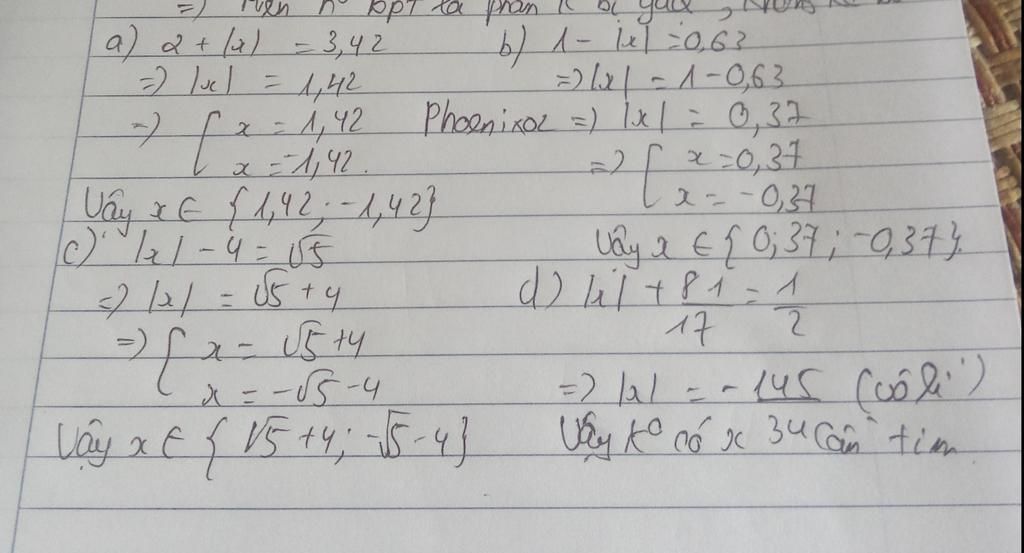 a) 2 + |x| = 3,42
=> |x| = 1,42
=> [ x = 1,42
x = -1,42.
Vậy x ∈ {1,42; -1,42}
b) 1 - |x| = 0,63
=> |x| = 1 - 0,63
Phoenixoz => |x| = 0,37
=> [ x = 0,37
x = -0,37
Vậy x ∈ {0,37; -0,37}.
c) |x| - 4 = √5
=> |x| = √5 + 4
=> [ x = √5 + 4
x = -√5 - 4
Vậy x ∈ {√5 + 4; -√5 - 4}
d) |x| + 81/17 = 1/2
=> |x| = -145/34 (vô lí)
Vậy k° có x cần tìm